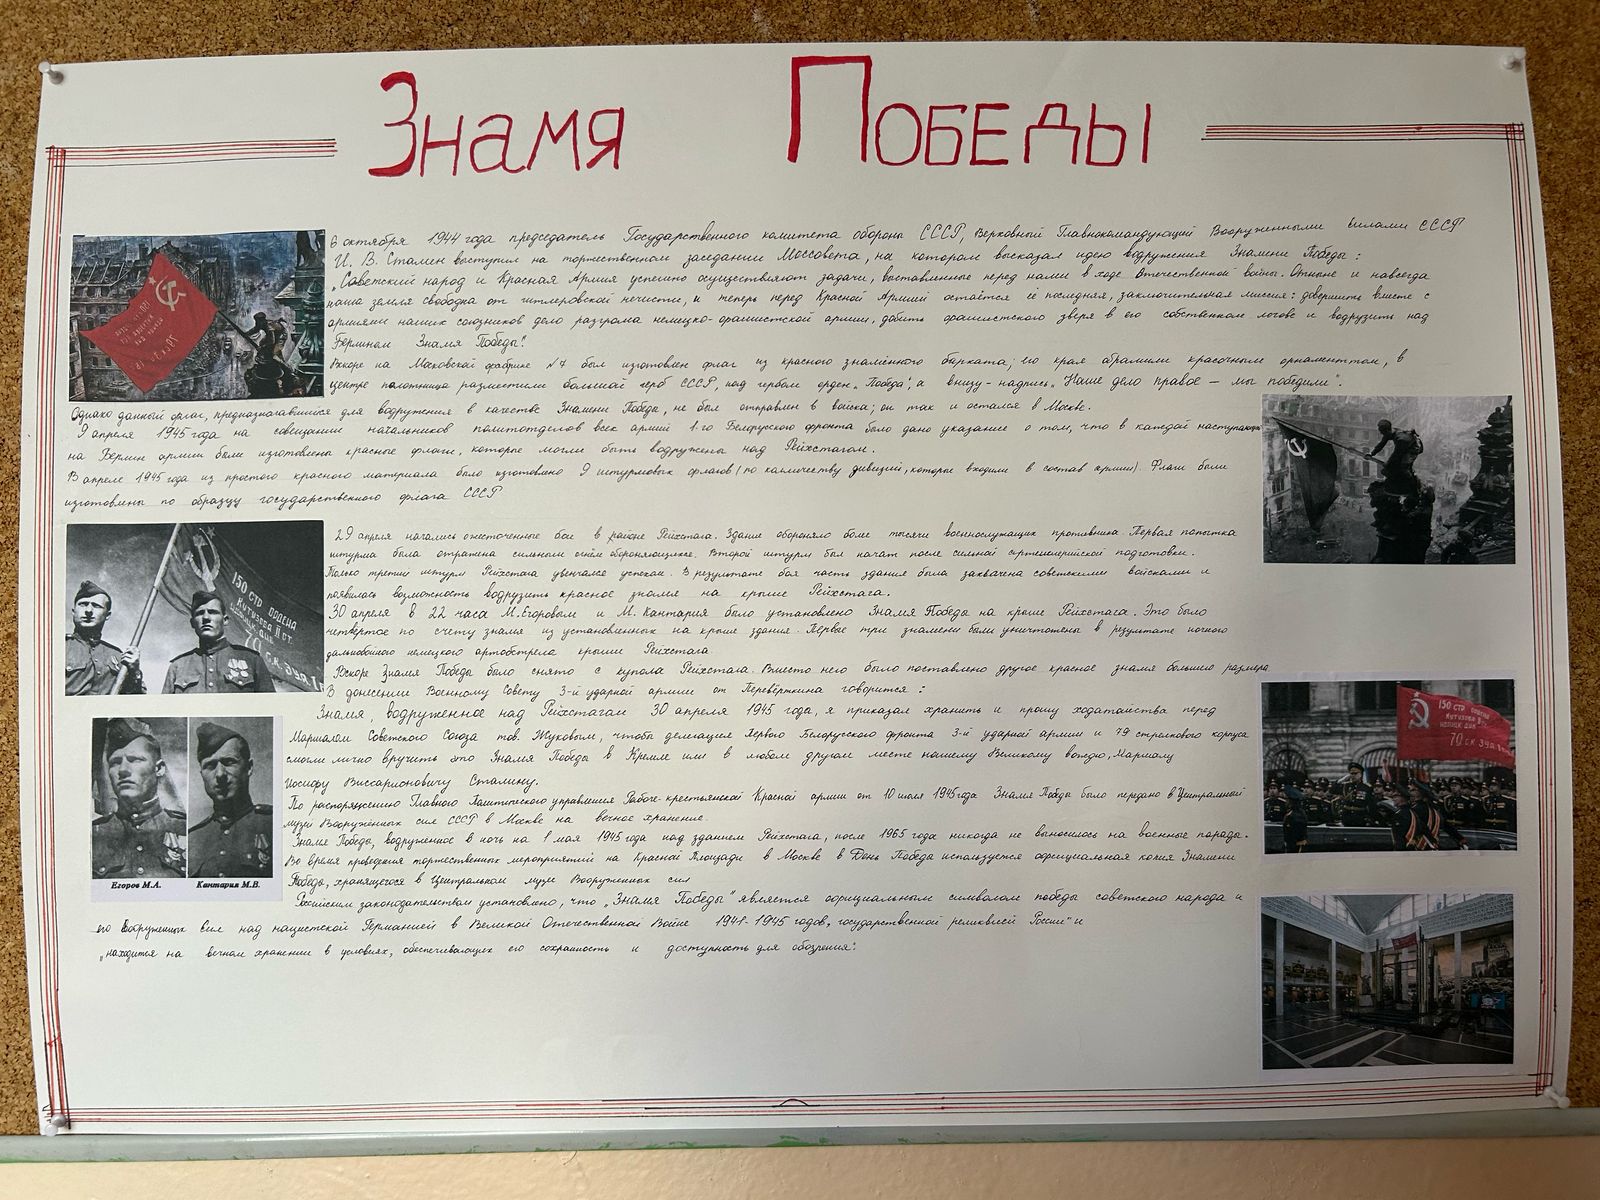 Знамя Победы
6 октября 1944 года председатель Государственного комитета обороны СССР, Верховный Главнокомандующий Вооруженными силами СССР
И. В. Сталин выступил на торжественном заседании Моссовета, на котором высказал идею водружения Знамени Победы:
„Советский народ и Красная Армия успешно осуществляют задачи, выставленные перед нами в ходе Отечественной войны. Отныне и навсегда
наша земля свободна от гитлеровской нечисти, и теперь перед Красной Армией остаётся её последняя, заключительная миссия: довершить вместе с
армиями наших союзников дело разгрома немецко-фашистской армии, добить фашистского зверя в его собственном логове и водрузить над
Берлином Знамя Победы".
Вскоре на Московской фабрике №7 был изготовлен флаг из красного знамённого бархата; его края обрамили красочным орнаментом, в
центре полотнища разместили большой герб СССР, над гербом орден „Победа", а внизу - надпись „Наше дело правое — мы победили".
Однако данный флаг, предназначавшийся для водружения в качестве Знамени Победы, не был отправлен в войска; он так и остался в Москве.
9 апреля 1945 года на совещании начальников политотделов всех армий 1-го Белорусского фронта было дано указание о том, что в каждой наступающей
на Берлин армии были изготовлены красные флаги, которые могли быть водружены над Рейхстагом.
В апреле 1945 года из простого красного материала было изготовлено 9 штурмовых флагов (по количеству дивизий, которые входили в состав армии). Флаги были
изготовлены по образцу государственного флага СССР
29 апреля начались ожесточенные бои в районе Рейхстага. Здание обороняло более тысячи военнослужащих противника. Первая попытка
штурма была отражена сильным огнём обороняющихся. Второй штурм был начат после сильной артиллерийской подготовки.
Только третий штурм Рейхстага увенчался успехом. В результате боя часть здания была захвачена советскими войсками и
появилась возможность водрузить красное знамя на крыше Рейхстага.
30 апреля в 22 часа М.Егоровым и М. Кантария было установлено Знамя Победы на крыше Рейхстага. Это было
четвёртое по счету знамя из установленных на крыше здания. Первые три знамени были уничтожены в результате ночного
дальнобойного немецкого артобстрела крыши Рейхстага
Вскоре Знамя Победы было снято с купола Рейхстага. Вместо него было поставлено другое красное знамя большего размера.
В донесении Военному Совету 3-й ударной армии от Перевёрткина говорится:
Знамя, водруженное над Рейхстагом 30 апреля 1945 года, я приказал хранить и прошу ходатайства перед
Маршалом Советского Союза тов. Жуковым, чтобы делегация Первого Белорусского фронта 3-й ударной армии и 79 стрелкового корпуса
смогли лично вручить это Знамя Победы в Кремле или в любом другом месте нашему Великому вождю, Маршалу
Иосифу Виссарионовичу Сталину.
По распоряжению Главного Политического управления Рабоче-крестьянской Красной армии от 10 июля 1945 года Знамя Победы было передано в Центральный
музей Вооружённых сил СССР в Москве на вечное хранение.
Знамя Победы, водруженное в ночь на 1 мая 1945 года над зданием Рейхстага, после 1965 года никогда не выносилось на военные парады.
Во время проведения торжественных мероприятий на Красной Площади в Москве в День Победы используется официальная копия Знамени
Победы, хранящегося в Центральном музее Вооруженных сил
Российским законодательством установлено, что „Знамя Победы" является официальным символом победы советского народа и
его Вооруженных Сил над нацистской Германией в Великой Отечественной Войне 1941-1945 годов, государственной реликвией России" и
„находится на вечном хранении в условиях, обеспечивающих его сохранность и доступность для обозрения".
150 СТР. ОРДЕНА
КУТУЗОВА II СТ.
ИДРИЦК. ДИВ.
79 С.К. 3 У.А. 1
Егоров М.А. Кантария М.В.
150 СТР. ОРДЕНА
КУТУЗОВА II СТ.
ИДРИЦК. ДИВ.
79 С.К. 3 У.А. 1